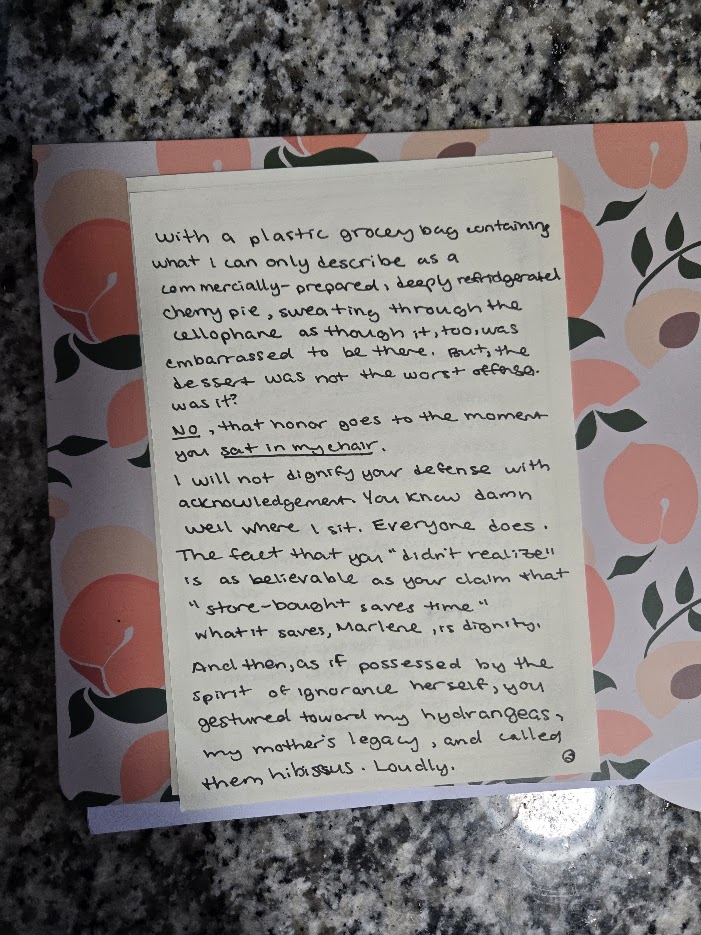 with a plastic grocery bag containing
what I can only describe as a
commercially-prepared, deeply refridgerated
cherry pie, sweating through the
cellophane as though it, too, was
embarrassed to be there. But, the
dessert was not the worst offense.
was it?
NO, that honor goes to the moment
you sat in my chair.
I will not dignify your defense with
acknowledgement. You know damn
well where I sit. Everyone does.
The fact that you "didn't realize"
is as believable as your claim that
"store-bought saves time"
what it saves, Marlene, is dignity.
And then, as if possessed by the
spirit of ignorance herself, you
gestured toward my hydrangeas,
my mother's legacy, and called
them hibissus. Loudly.